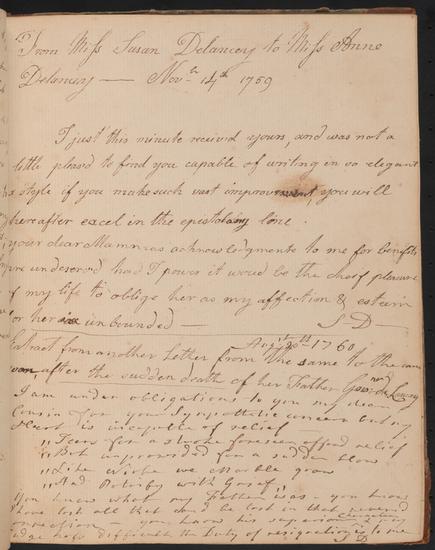 From Miss Susan Delancey to Miss Anne
Delancey — Novr 14th 1759
I just this minute receivd yours, and was not a
little pleasd to find you capable of writing in so elegant
a style if you make such vast improvement, you will
hereafter excel in the epistolary line.
your dear Mammas acknowledgments to me for benefits
are undeserved had I power it woud be the chief pleasure
of my life to oblige her as my affection & esteem
for her is unbounded —
S D —
Augst 20th 1760
Extract from another Letter from the same to the same
after the sudden death of her Father Govnr De Lancey
I am under obligations to you my dear
Cousin for your Sympathetic concern but my
Heart is incapable of relief —
"Tears for a stroke foreseen afford relief
"But unprovided for a sudden blow
"Like Niobe we Marble grow
"And Petrify with Grief"
You know what my Father was — you know
I have lost all that coud be lost in that revered
connection — you know his superior
how difficult the Duty of resignation is to me
S D